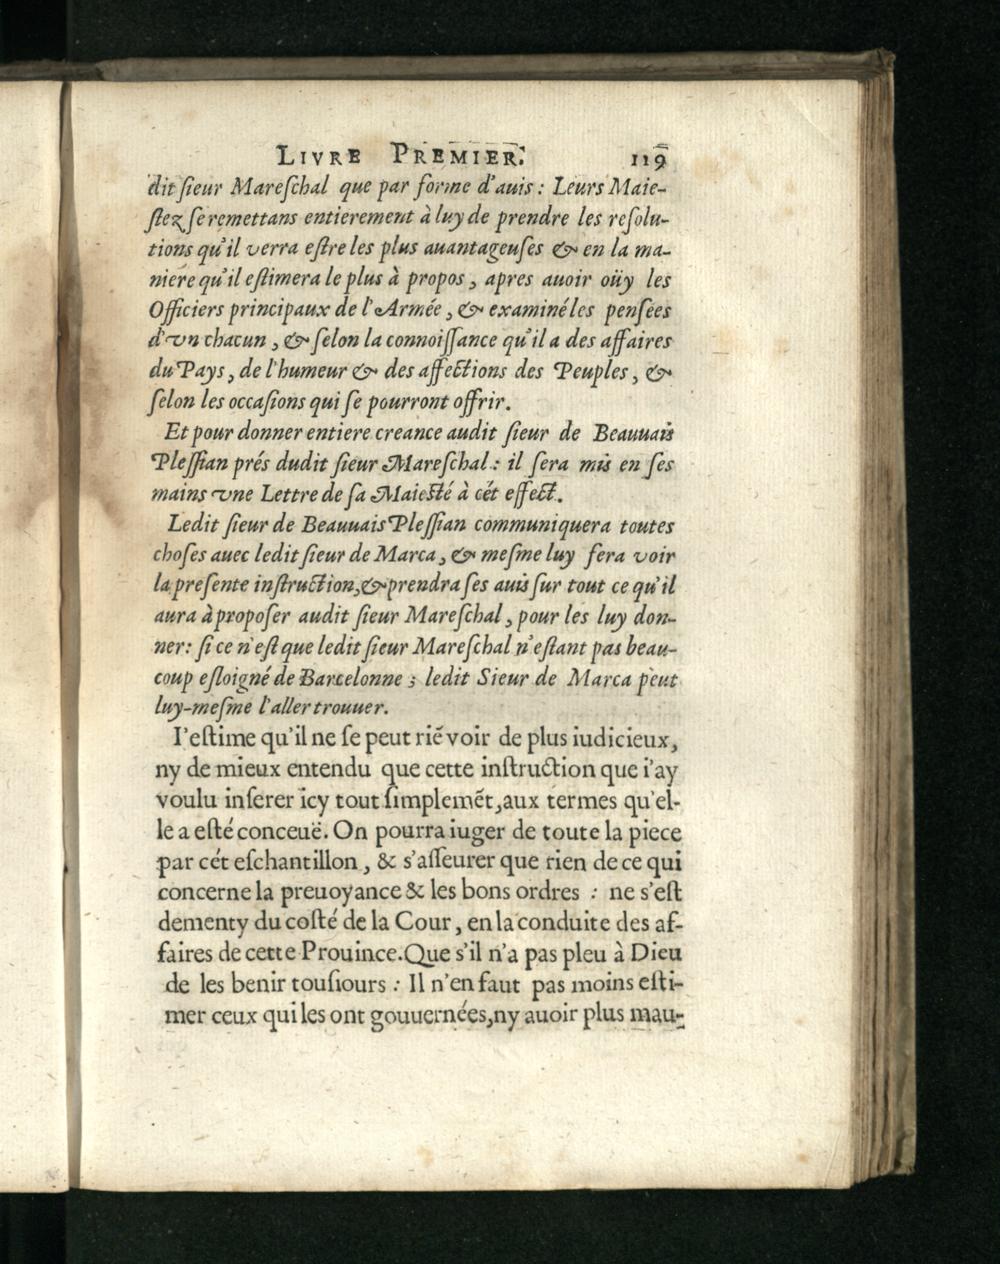 LIVRE PREMIER. 119
dit ſieur Mareſchal que par forme d'auis : Leurs Maie-
ſtez ſe remettans entierement à luy de prendre les reſolu-
tions qu'il verra eſtre les plus auantageuſes & en la ma-
niere qu'il eſtimera le plus à propos, apres auoir oüy les
Officiers principaux de l'Armée, & examiné les penſées
d'vn chacun, & ſelon la connoiſſance qu'il a des affaires
du Pays, de l'humeur & des affections des Peuples, &
ſelon les occaſions qui ſe pourront offrir.
Et pour donner entiere creance audit ſieur de Beauuais
Pleſſian prés dudit ſieur Mareſchal : il ſera mis en ſes
mains vne Lettre de ſa Maieſté à cét effect.
Ledit ſieur de Beauuais Pleſſian communiquera toutes
choſes auec ledit ſieur de Marca, & meſme luy fera voir
la preſente inſtruction, & prendra ſes auis ſur tout ce qu'il
aura à propoſer audit ſieur Mareſchal, pour les luy don-
ner : ſi ce n'eſt que ledit ſieur Mareſchal n'eſtant pas beau-
coup eſloigné de Barcelonne ; ledit Sieur de Marca peut
luy-meſme l'aller trouuer.
I'eſtime qu'il ne ſe peut riẽ voir de plus iudicieux,
ny de mieux entendu que cette inſtruction que i'ay
voulu inſerer icy tout ſimplemẽt, aux termes qu'el-
le a eſté conceuë. On pourra iuger de toute la piece
par cét eſchantillon, & s'aſſeurer que rien de ce qui
concerne la preuoyance & les bons ordres : ne s'eſt
dementy du coſté de la Cour, en la conduite des af-
faires de cette Prouince. Que s'il n'a pas pleu à Dieu
de les benir touſiours : Il n'en faut pas moins eſti-
mer ceux qui les ont gouuernées, ny auoir plus mau-